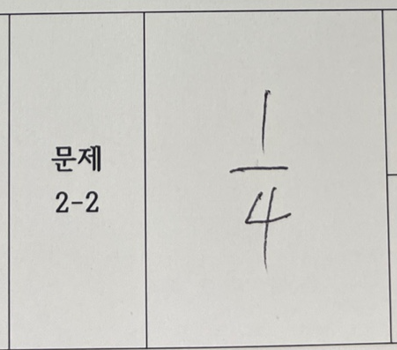 문제
2-2
1/4